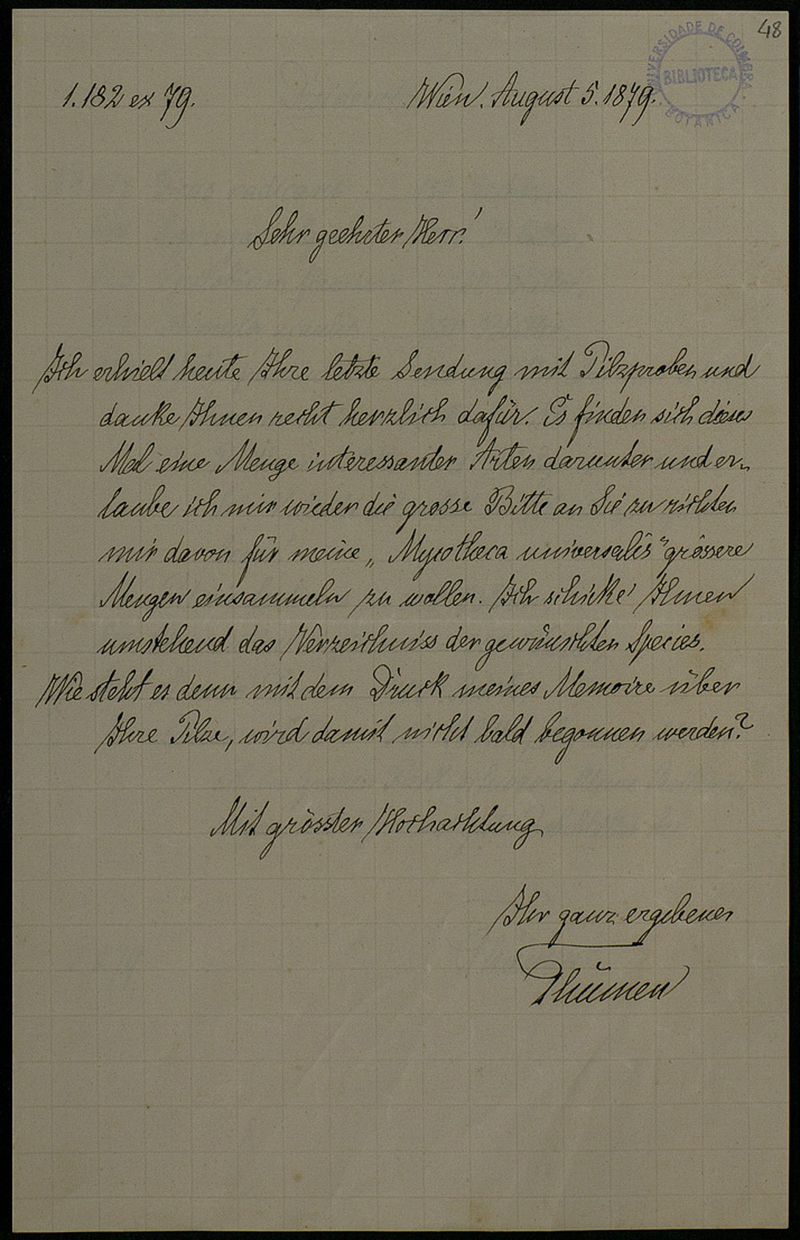 48
UNIVERSIDADE DE COIMBRA
BIBLIOTECA
BOTANICA
1.182 ex 79.
Wien. August 5. 1879.
Sehr geehrter Herr!
Ich erhielt heute Ihre letzte Sendung mit Pilzproben und
danke Ihnen recht herzlich dafür. Es finden sich dieses
Mal eine Menge interessanter Arten darunter und er-
laube ich mir wieder die grosse Bitte an Sie zu richten
mir davon für meine „Mycotheca universalis" grössere
Mengen einsammeln zu wollen. Ich schicke Ihnen
umstehend das Verzeichniss der gewünschten Species.
Wie steht es denn mit dem Druck meines Memoire über
Ihre Pilze, wird damit nicht bald begonnen werden?
Mit grösster Hochachtung
Ihr ganz ergebener
Thümen